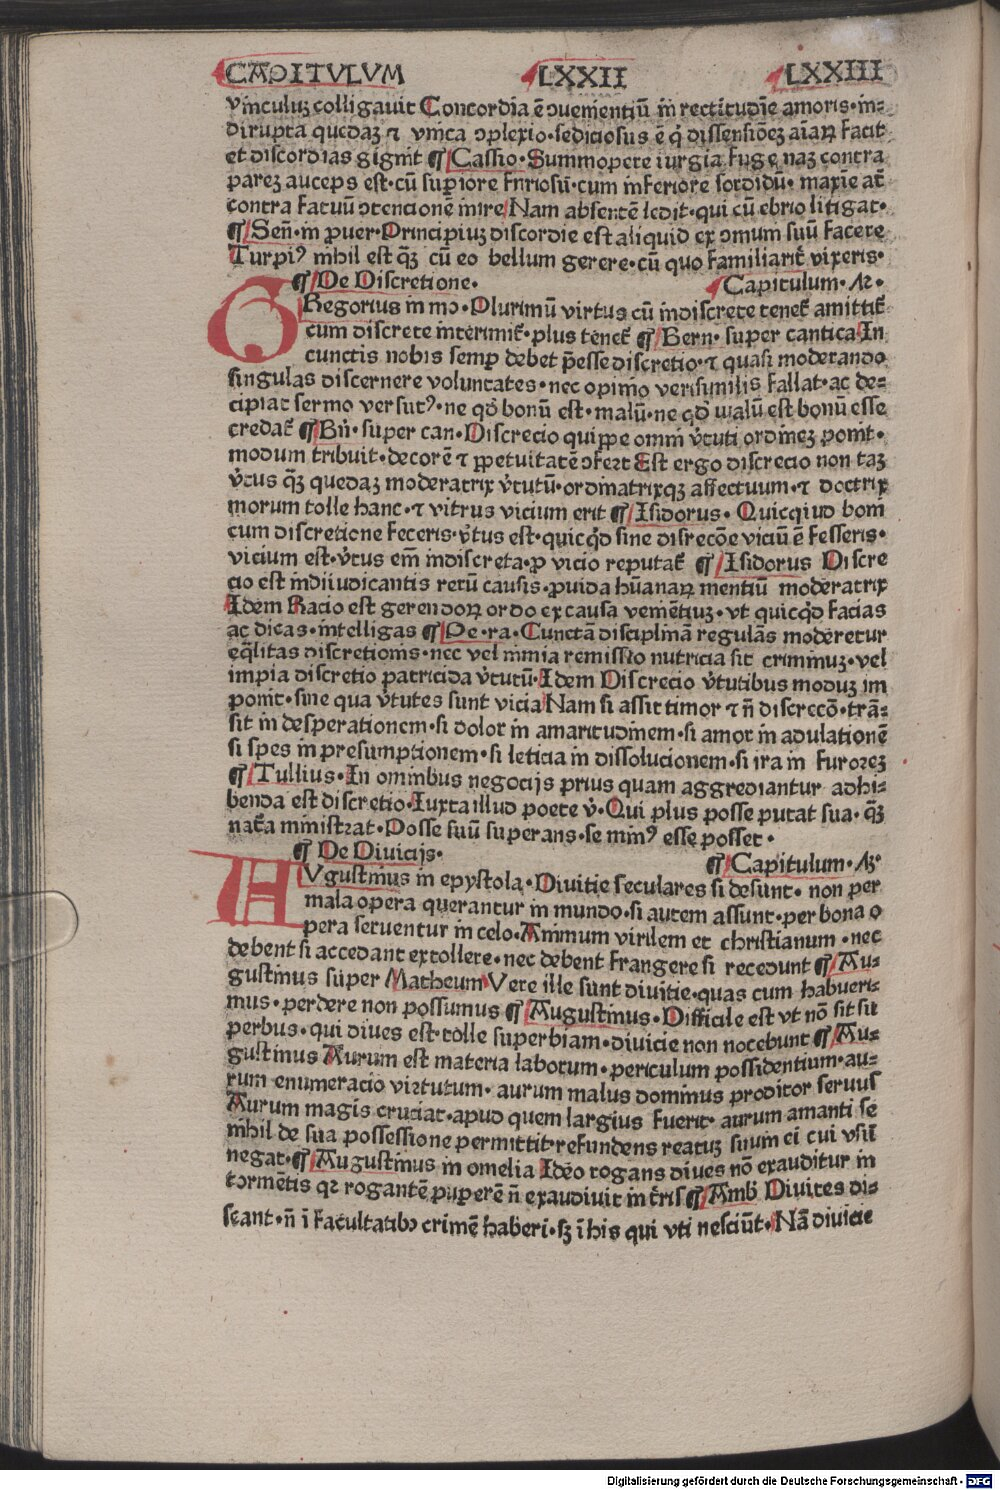 CAPITVLVM LXXII LXXIII
vinculuꝫ colligauit Concordia ē ↄuenientiū in rectitudīe amoris · in⸗
dirupta quedaꝫ ⁊ vnica ↄplexio · sediciosus ē q̇ dissensiōeꝫ aīaꝝ facit
et discordias gignit ¶ Cassio · Summopere iurgia fuge naꝫ contra
pareꝫ auceps est · cū supiore furiosū · cum inferiore sordidū · maxīe at̄
contra fatuū ↄtencionē inire Nam absentē ledit · qui cū ebrio litigat ·
¶ Sen̄ · in puer · Principiuꝫ discordie est aliquid ex ↄmum suū facere
Turpi⁹ nihil est q̄ꝫ cū eo bellum gerere · cū quo familiarit̄ vixeris ·
¶ De Discretione · Capitulum · Λ2 ·
GRegorius in mo · Plurimū virtus cū indiscrete tenet̄ amittit̄
cum discrete interimit̄ · plus tenet̄ ¶ Bern · super cantica In
cunctis nobis semp debet p̄esse discretio · ⁊ quasi moderando
singulas discernere voluntates · nec opinio verisimilis fallat · ac de⸗
cipiat sermo versut⁹ · ne qd̄ bonū est · malū · ne qd̄ walū est bonū esse
credat̄ ¶ Bn̄ · super can · Discrecio quippe omni v̄tuti ordineꝫ ponit ·
modum tribuit · decorē ⁊ ppetuitatē ↄfert Est ergo discrecio non taꝫ
v̄tus q̄ꝫ quedaꝫ moderatrix v̄tutū · ordinatrixqꝫ affectuum · ⁊ doctrix
morum tolle hanc · ⁊ vitrus vicium erit ¶ Isidorus · Quicqiud boni
cum discretione feceris · v̄tus est · quicq̇d sine disrecōe viciū ē fesseris ·
vicium est · v̄tus em̄ indiscreta · p vicio reputat̄ ¶ Isidorus Discre
cio est indiiudicantis rerū causis · puida hūanaꝝ mentiū moderatrix
Idem Racio est gerendoꝝ ordo ex causa veniētiuꝫ · vt quicq̇d facias
ac dicas · intelligas ¶ Pe · ra · Cunctā disciplinā regulās moderetur
eq̄litas discretionis · nec vel nimia remissio nutricia sit criminuꝫ · vel
impia discretio patricida v̄tutū · Idem Discrecio v̄tutibus moduꝫ im
ponit · sine qua v̄tutes sunt vicia Nam si assit timor ⁊ n̄ discrecō · trā⸗
sit in desperationem · si dolor in amaritudinem · si amor in adulationē
si spes in presumptionem · si leticia in dissolucionem · si ira in furoreꝫ
¶ Tullius · In omnibus negocijs prius quam aggrediantur adhi⸗
benda est discretio · Iuxta illud poete v̄ · Qui plus posse putat sua · q̄ꝫ
nat̄a ministrat · Posse suū superans · se min⁹ esse posset ·
¶ De Diuicijs · ¶ Capitulum · Λ3 ·
AVgustinus in epystola · Diuitie seculares si desunt · non per
mala opera querantur in mundo · si autem assunt · per bona o
pera seruentur in celo · Animum virilem et christianum · nec
debent si accedant extollere · nec debent frangere si recedunt ¶ Au⸗
gustinus super Matheum Vere ille sunt diuitie · quas cum habueri⸗
mus · perdere non possumus ¶ Augustinus · Difficile est vt nō sit su
perbus · qui diues est · tolle superbiam · diuicie non nocebunt ¶ Au⸗
gustinus Aurum est materia laborum · periculum possidentium · au⸗
rum enumeracio virtutum · aurum malus dominus proditor seruus
Aurum magis cruciat · apud quem largius fuerit · aurum amanti se
nihil de sua possessione permittit · refundens reatuꝫ suum ei cui vsū
negat · ¶ Augustinus in omelia Ideo rogans diues nō exauditur in
tormētis qr rogantē puperē n̄ exaudiuit in t̄ris ¶ Amb Diuites di⸗
scant · n̄ ī facultatibꝫ crimē haberi · sꝫ ī his qui vti nesciūt · Nā diuicie